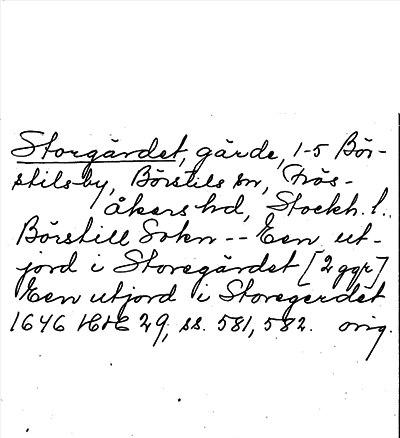 Storgärdet, gärde, 1-5 Bör-
stilsby, Börstils sn, Frös-
åkers hd, Stockh. l.
Börstill Sokn -- Een ut-
jord i Storegärdet [2 ggr]
Een utjord i Storegerdet
1646 29, ss. 581, 582. orig.